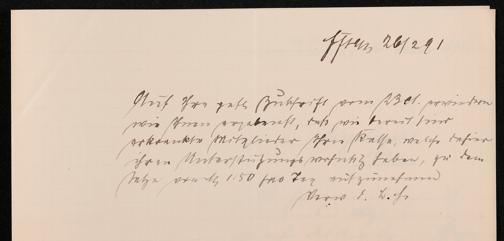 Essen, 26/2 91
Auf Ihre gefl. Zuschrift vom 23 ct. erwidern
wir Ihnen ergebenst, daß wir bereit sind
erkrankte Mitglieder Ihrer Kasse, welche dafür
ihren Unterstützungswohnsitz haben, zu dem
Satze von M 1.50 pro Tag aufzunehmen